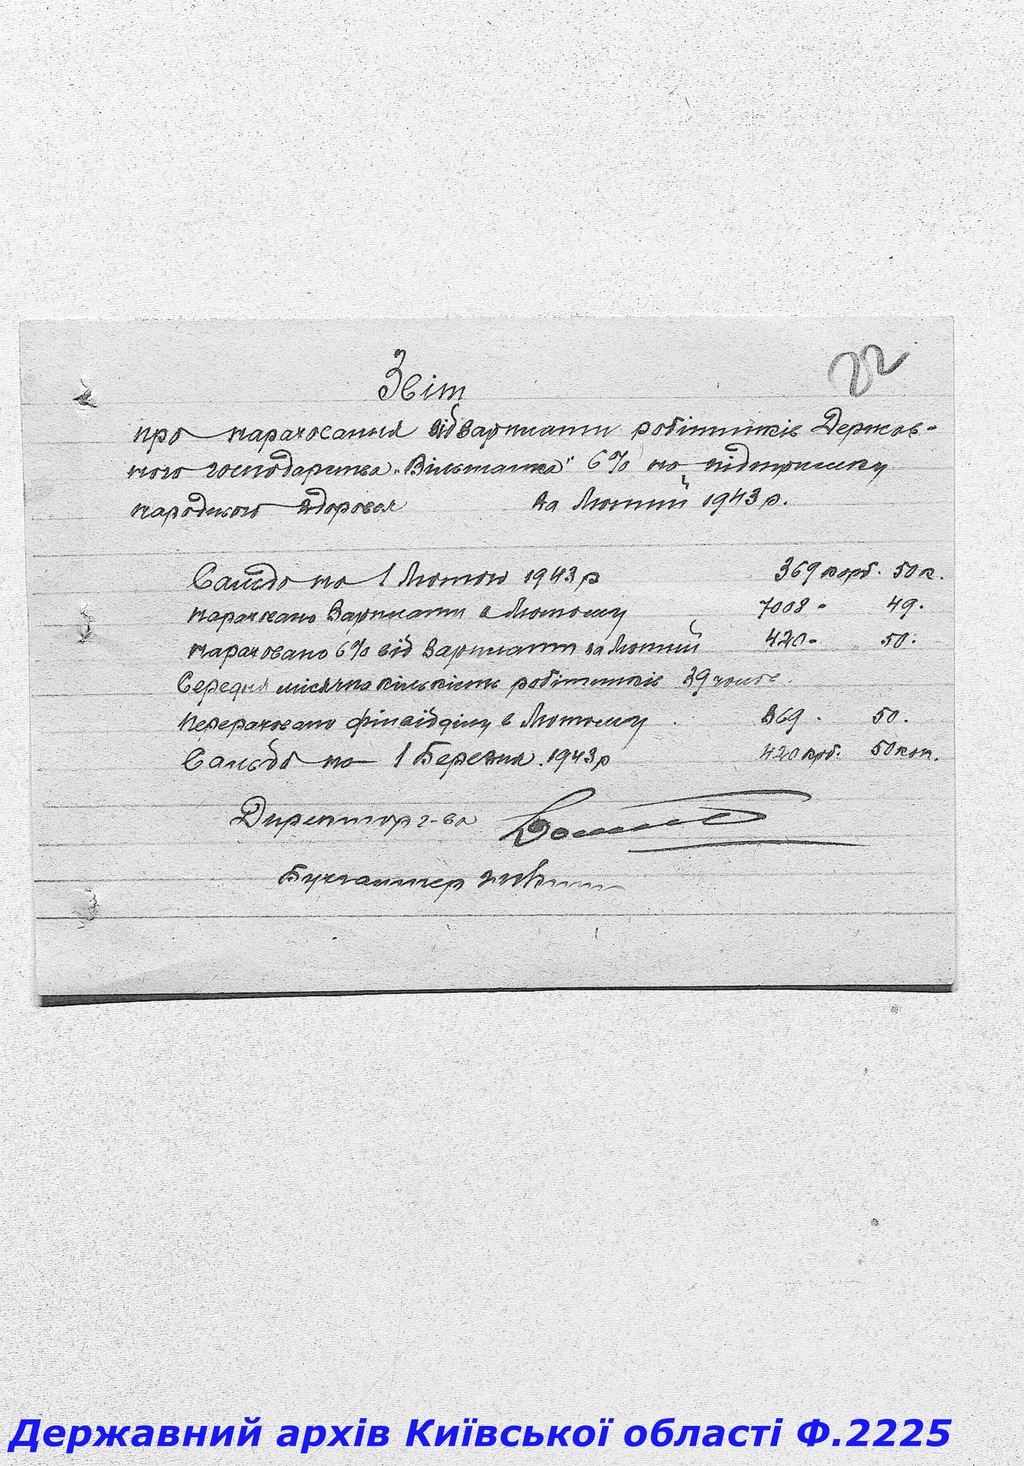 22
Звіт
про нарахосання від Зарплати робітників Держав-
ного господарства „Вільшанка" 6% на підтримку
народнього здоровля За Лютий 1943 р.
Сальдо на 1 Лютого 1943 р 369 карб. 50 к.
нараховано Зарплати в Лютому 7008 - 49.
нараховано 6% від Зарплати за Лютий 420 - 50.
Середня місячна кількість робітників 39 чолов.
Перераховано фінвідділу в Лютому 369 . 50.
Сальдо на 1 Березня. 1943 р 420 крб. 50 коп.
Директор г-ва
Бухгалтер
Державний архів Київської області Ф.2225